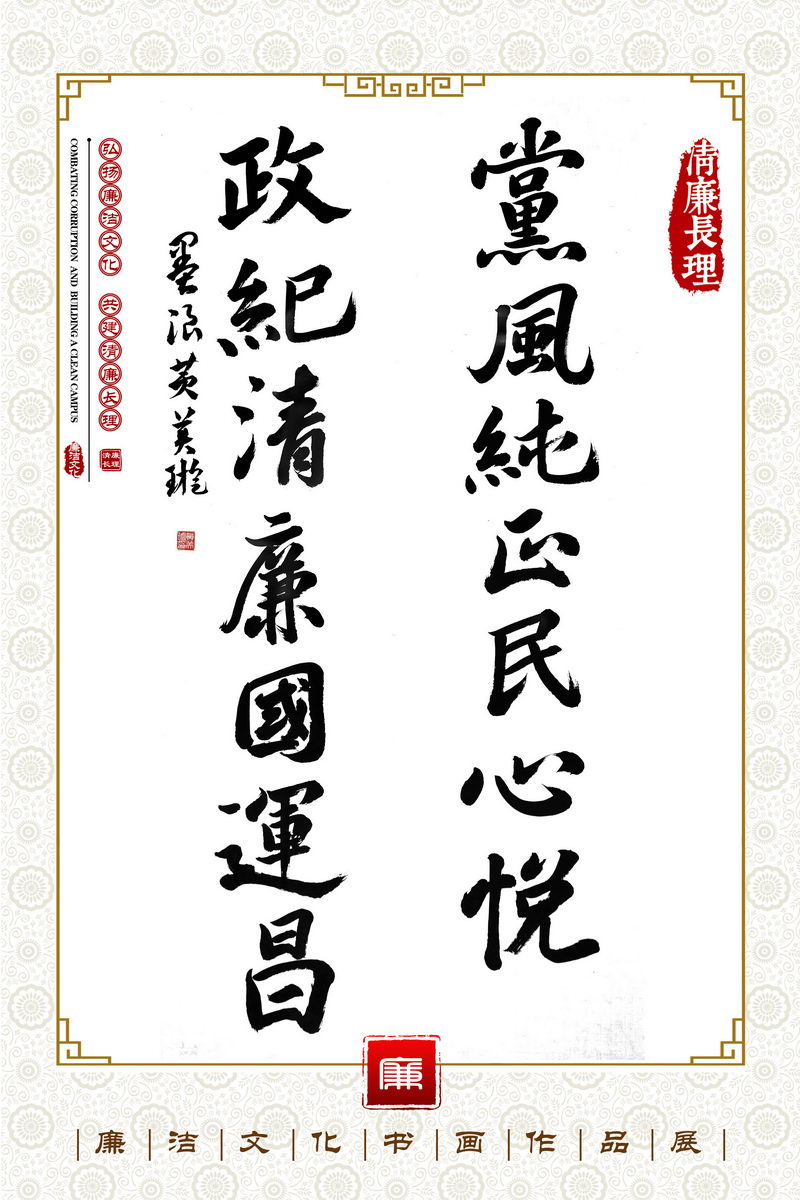 清廉長理
黨風純正民心悦
政紀清廉國運昌
墨浪 黄美璇
弘扬廉洁文化 共建清廉长理
COMBATING CORRUPTION AND BUILDING A CLEAN CAMPUS
廉洁文化
廉
廉洁文化书画作品展